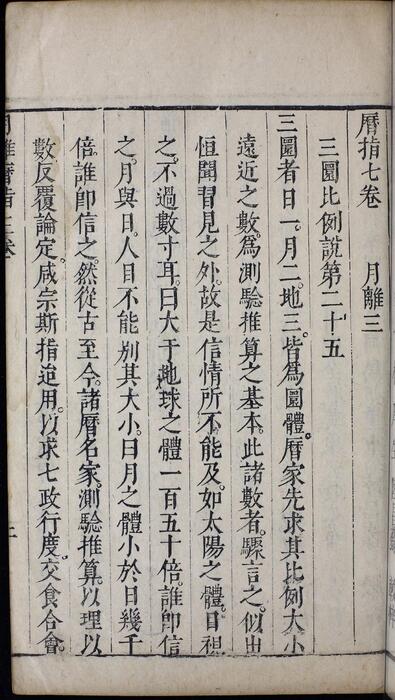 曆指七卷　月離三
三圜比例說第二十五
三圜者日一。月二。地三。皆爲圜體。曆家先求其比例大小
遠近之數。爲測驗推算之基本。此諸數者。驟言之。似出
恒聞習見之外。故是信情所不能及。如太陽之體。目視
之。不過數寸耳。曰大于地球之體一百五十倍。誰卽信
之。月與日。人目不能別其大小。曰月之體小於日幾千
倍。誰卽信之。然從古至今。諸曆名家。測驗推算。以理以
數反覆論定。咸宗斯指迨用。以求七政行度。交食合會。
月離曆指七卷